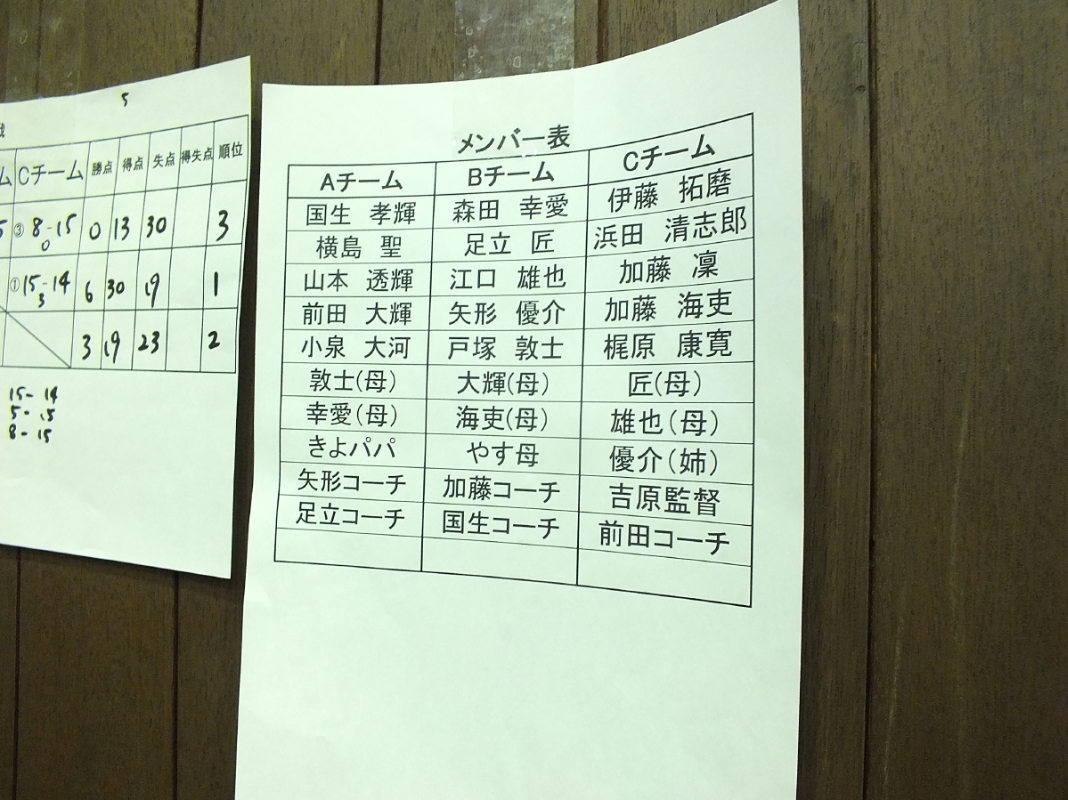 5
戦
ム Cチーム 勝点 得点 失点 得失点 順位
5 ③ 8-15 0 0 13 30 3
① 15-14 3 6 30 19 1
3 19 23 2
15- 14
5- 15
8- 15
メンバー表
Aチーム Bチーム Cチーム
国生 孝輝 森田 幸愛 伊藤 拓磨
横島 聖 足立 匠 浜田 清志郎
山本 透輝 江口 雄也 加藤 凜
前田 大輝 矢形 優介 加藤 海吏
小泉 大河 戸塚 敦士 梶原 康寛
敦士(母) 大輝(母) 匠(母)
幸愛(母) 海吏(母) 雄也(母)
きよパパ やす母 優介(姉)
矢形コーチ 加藤コーチ 吉原監督
足立コーチ 国生コーチ 前田コーチ